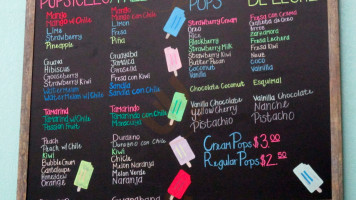 POPSICLES
POPS
DE LECHE
Mango
Mango w/Chile
Lime
Strawberry
Pineapple
Guava
Hibiscus
Gooseberry
Strawberry Kiwi
Watermelon
Watermelon w/Chile
Tamarind
Tamarind w/Chile
Passion Fruit
Peach
Kiwi
Bubble Gum
Cantaloupe
Honeydew
Orange
Mango
Mango con Chile
Limon
Fresa
Piña
Guava
Jamaica
Fresa con Kiwi
Sandia
Sandia con Chile
Tamarindo
Tamarindo con Chile
Maracuya
Durazno
Kiwi
Chicle
Melon Naranja
Melon Verde
Naranja
Guanabana
Strawberry Cream
Oreo
Rice
Blackberry
Milk Strawberry
Butter Pecan
Walnut
Coconut
Vanilla
Chocolate Coconut
Vanilla Chocolate
Yellow Cherry
Pistachio
Fresas con Crema
Galletas de Oreo
Arroz
Zarzamora
Fresa Lechera
Nuez
coco
Vainilla
Esquimal
Vainilla Chocolate
Nanche
Pistacho
Cream Pops $3.00
Regular Pops $2.50